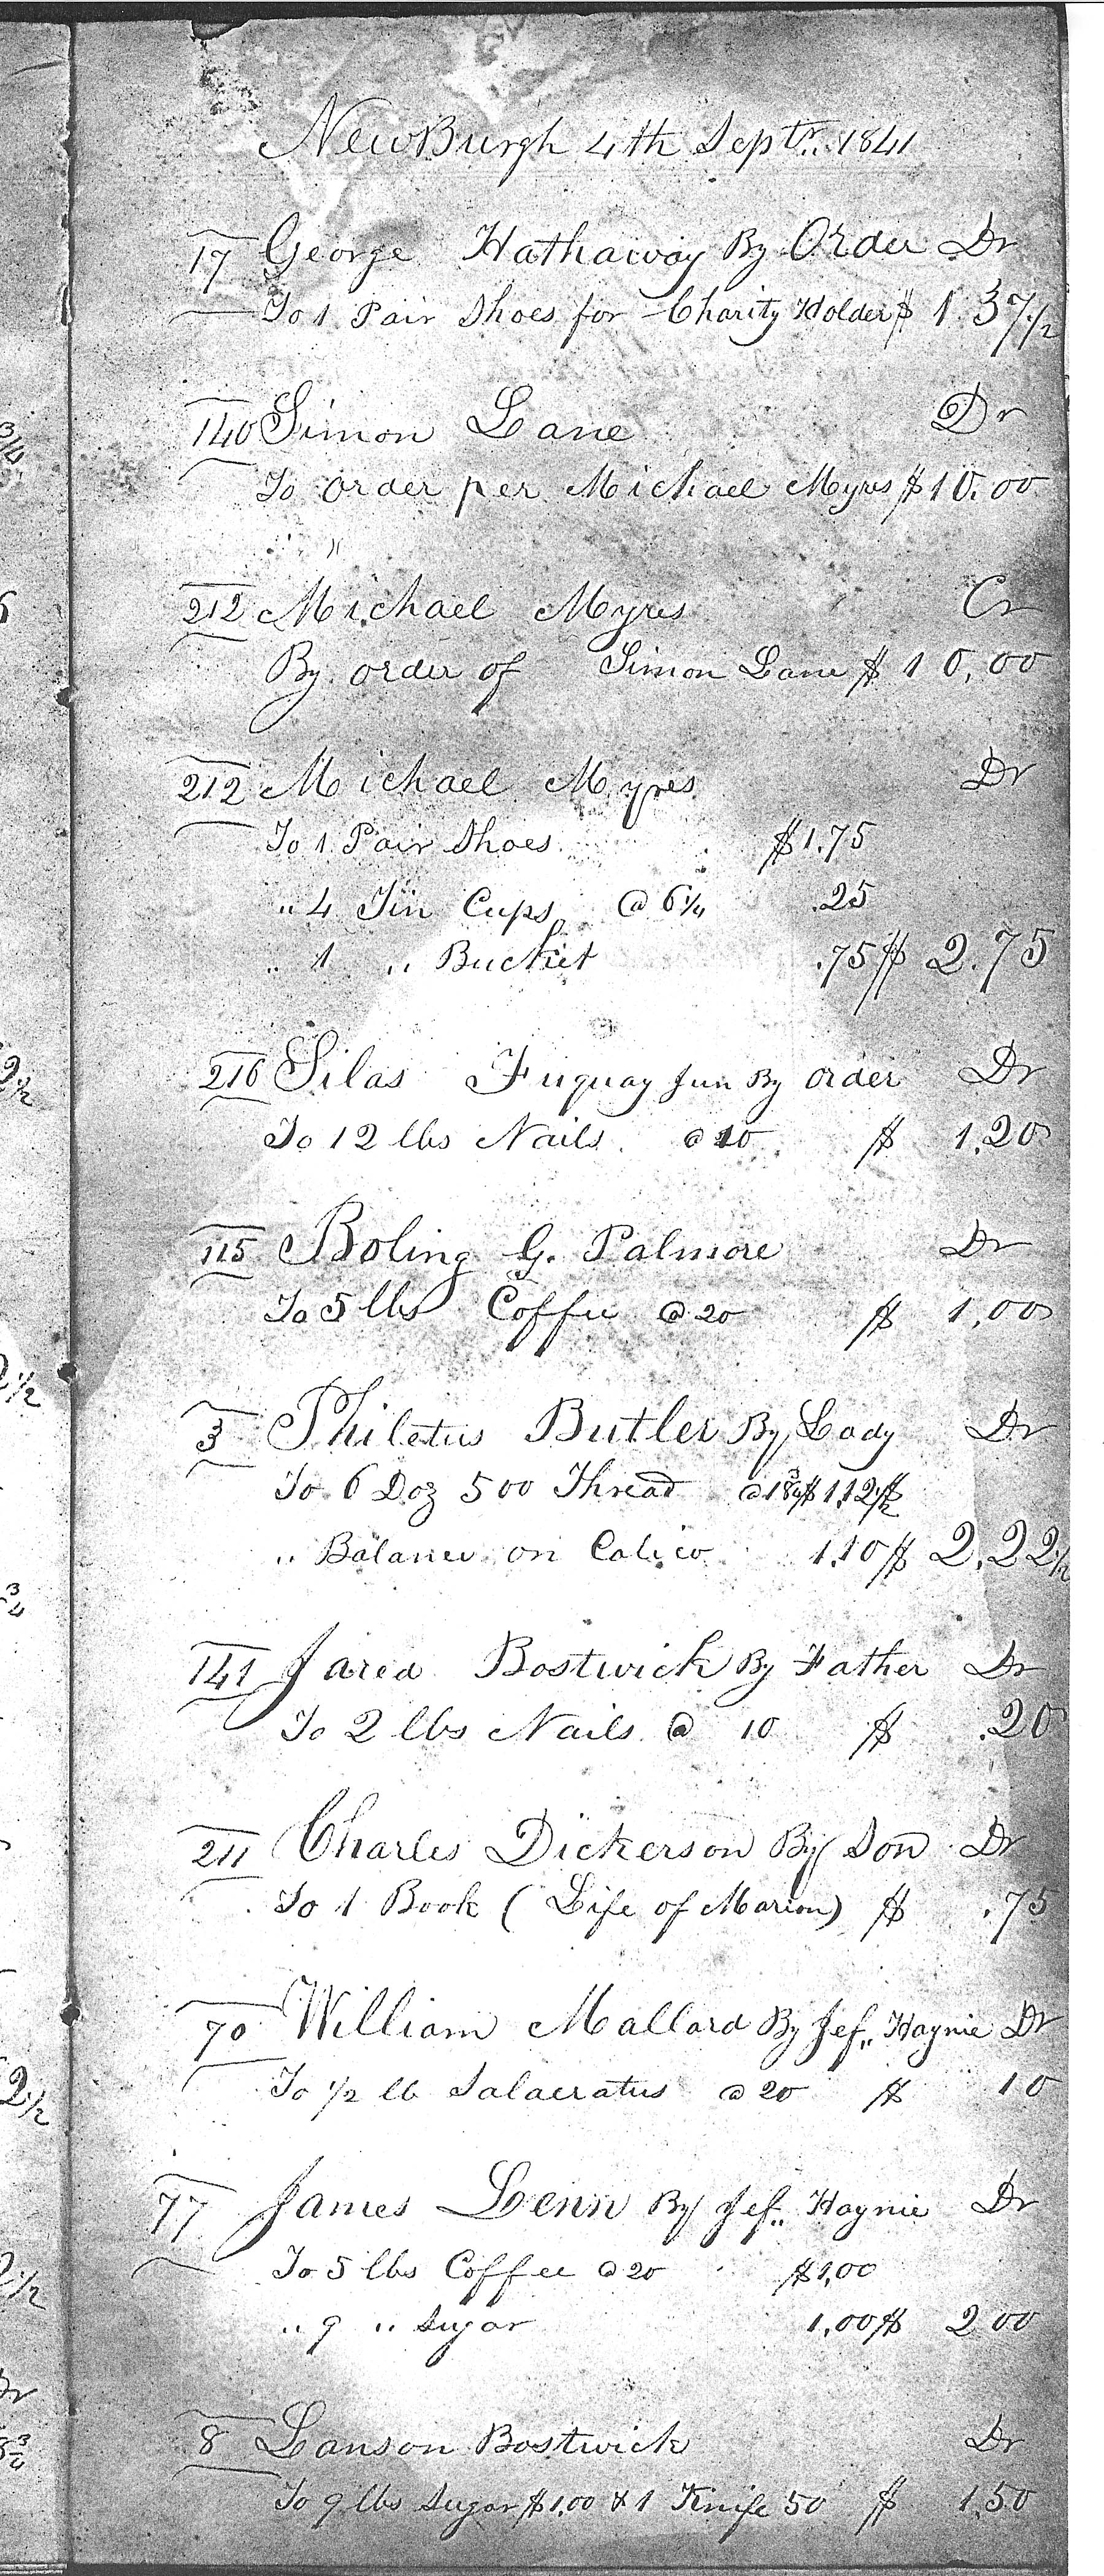 NewBurgh 4th Septr. 1841
17 George Hathaway By Order Dr
To 1 Pair Shoes for Charity Holder $ 1.37 1/2
140 Simon Lane Dr
To order per Michael Myres $10.00
212 Michael Myres Cr
By order of Simon Lane $ 10,00
212 Michael Myres Dr
To 1 Pair Shoes $1.75
" 4 Tin Cups @ 6 1/4 .25
" 1 " Bucket .75 $ 2.75
216 Silas Fuquay Jun By order Dr
To 12 lbs Nails @ 10 $ 1,20
115 Boling G. Palmore Dr
To 5 lbs Coffee @ 20 $ 1,00
3 Philetus Butler By Lady Dr
To 6 Doz 500 Thread @ 18 3/4 $ 1,12 1/2
" Balance on Calico 1,10 $ 2,22 1/2
141 Jared Bostwick By Father Dr
To 2 lbs Nails @ 10 $ .20
211 Charles Dickerson By Son Dr
To 1 Book ( Life of Marion) $ .75
70 William Mallard By Jef,, Haynie Dr
To 1/2 lb Salaeratus @ 20 $ 10
77 James Lenn By Jef,, Haynie Dr
To 5 lbs Coffee @ 20 $1,00
" 9 " Sugar 1,00 $ 2 00
8 Lanson Bostwick Dr
To 9 lbs Sugar $1,00 & 1 Knife 50 $ 1,50